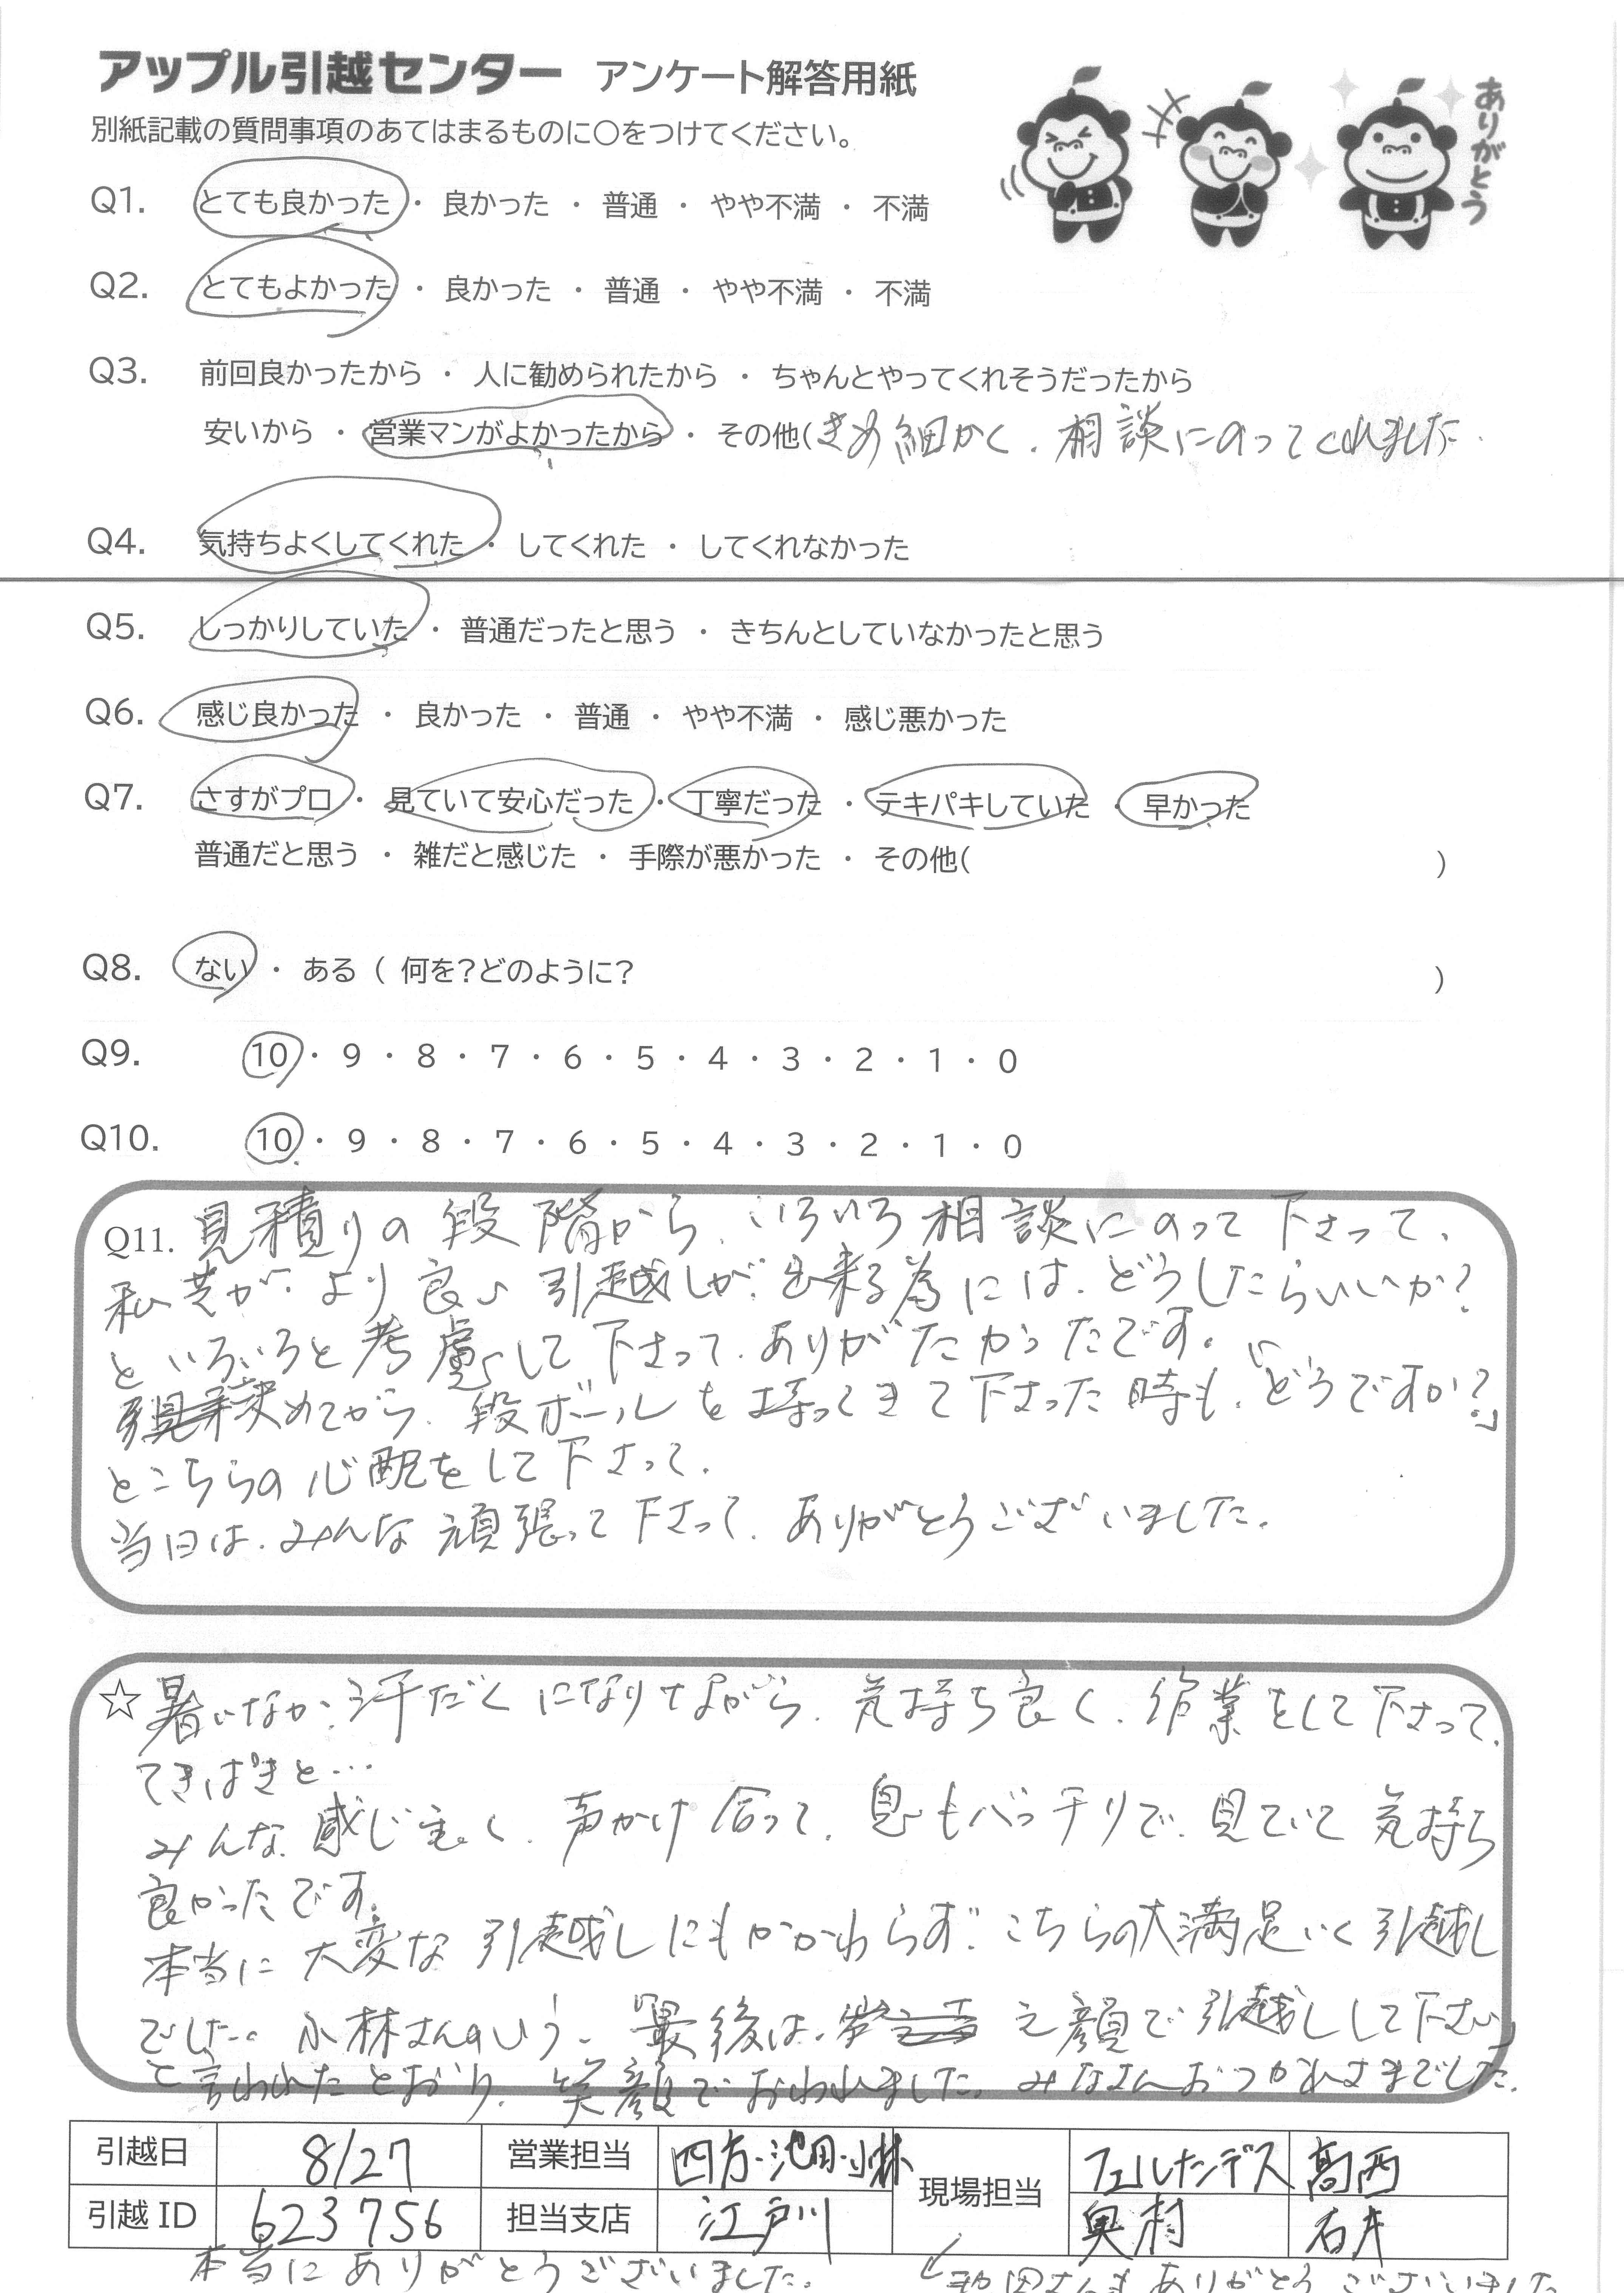 アップル引越センター アンケート解答用紙
別紙記載の質問事項のあてはまるものに○をつけてください。
ありがとう
Q1. とても良かった ・ 良かった ・ 普通 ・ やや不満 ・ 不満
Q2. とてもよかった ・ 良かった ・ 普通 ・ やや不満 ・ 不満
Q3. 前回良かったから ・ 人に勧められたから ・ ちゃんとやってくれそうだったから
安いから ・ 営業マンがよかったから ・ その他(きめ細かく、相談にのってくれました。
Q4. 気持ちよくしてくれた ・ してくれた ・ してくれなかった
Q5. しっかりしていた ・ 普通だったと思う ・ きちんとしていなかったと思う
Q6. 感じ良かった ・ 良かった ・ 普通 ・ やや不満 ・ 感じ悪かった
Q7. さすがプロ ・ 見ていて安心だった ・ 丁寧だった ・ テキパキしていた ・ 早かった
普通だと思う ・ 雑だと感じた ・ 手際が悪かった ・ その他( )
Q8. ない ・ ある ( 何を?どのように? )
Q9. 10 ・ 9 ・ 8 ・ 7 ・ 6 ・ 5 ・ 4 ・ 3 ・ 2 ・ 1 ・ 0
Q10. 10 ・ 9 ・ 8 ・ 7 ・ 6 ・ 5 ・ 4 ・ 3 ・ 2 ・ 1 ・ 0
Q11. 見積りの段階から、いろいろ相談にのって下さって、
私共が、より良い引越しが出来る為には、どうしたらいいか?
といろいろと考慮して下さって、ありがたかったです。
決めてから、段ボールを持ってきて下さった時も、「どうですか?」
とこちらの心配をして下さって、
当日は、みんな頑張って下さって、ありがとうございました。
☆ 暑いなか、汗だくになりながら、気持ち良く、作業をして下さって、
てきぱきと…
みんな感じ良く、声かけ合って、息もバッチリで、見ていて気持ち
良かったです。
本当に大変な引越しにもかかわらず、こちらの大満足いく引越し
でした。小林さんのいう、「最後は、え顔で引越しして下さい」
と言われたとおり、笑顔でおわれました。みなさんおつかれさまでした。
引越日 8/27 営業担当 四方・池田・小林 現場担当 フェルナンデス 髙西
引越ID 623756 担当支店 江戸川 奥村 石井
本当にありがとうございました。
さんもありがとうございました